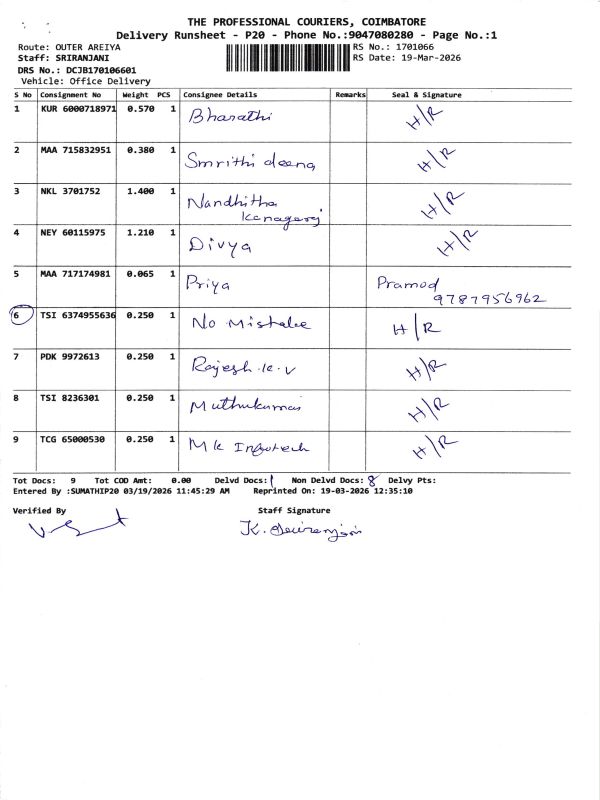 THE PROFESSIONAL COURIERS, COIMBATORE
Delivery Runsheet - P20 - Phone No.:9047080280 - Page No.:1
Route: OUTER AREIYA RS No.: 1701066
Staff: SRIRANJANI RS Date: 19-Mar-2026
DRS No.: DCJB170106601
Vehicle: Office Delivery
S No Consignment No Weight PCS Consignee Details Remarks Seal & Signature
1 KUR 6000718971 0.570 1 Bharathi H/R
2 MAA 715832951 0.380 1 Smrithi deena H/R
3 NKL 3701752 1.400 1 Nandhitha H/R
Kanagaraj
4 NEY 60115975 1.210 1 Divya H/R
5 MAA 717174981 0.065 1 Priya Pramod
9787956962
6 TSI 6374955636 0.250 1 No Mistake H/R
7 PDK 9972613 0.250 1 Rajesh .K. V H/R
8 TSI 8236301 0.250 1 Muthukumar H/R
9 TCG 65000530 0.250 1 Mk Infotech H/R
Tot Docs: 9 Tot COD Amt: 0.00 Delvd Docs: 1 Non Delvd Docs: 8 Delvy Pts:
Entered By :SUMATHIP20 03/19/2026 11:45:29 AM Reprinted On: 19-03-2026 12:35:10
Verified By Staff Signature
K.